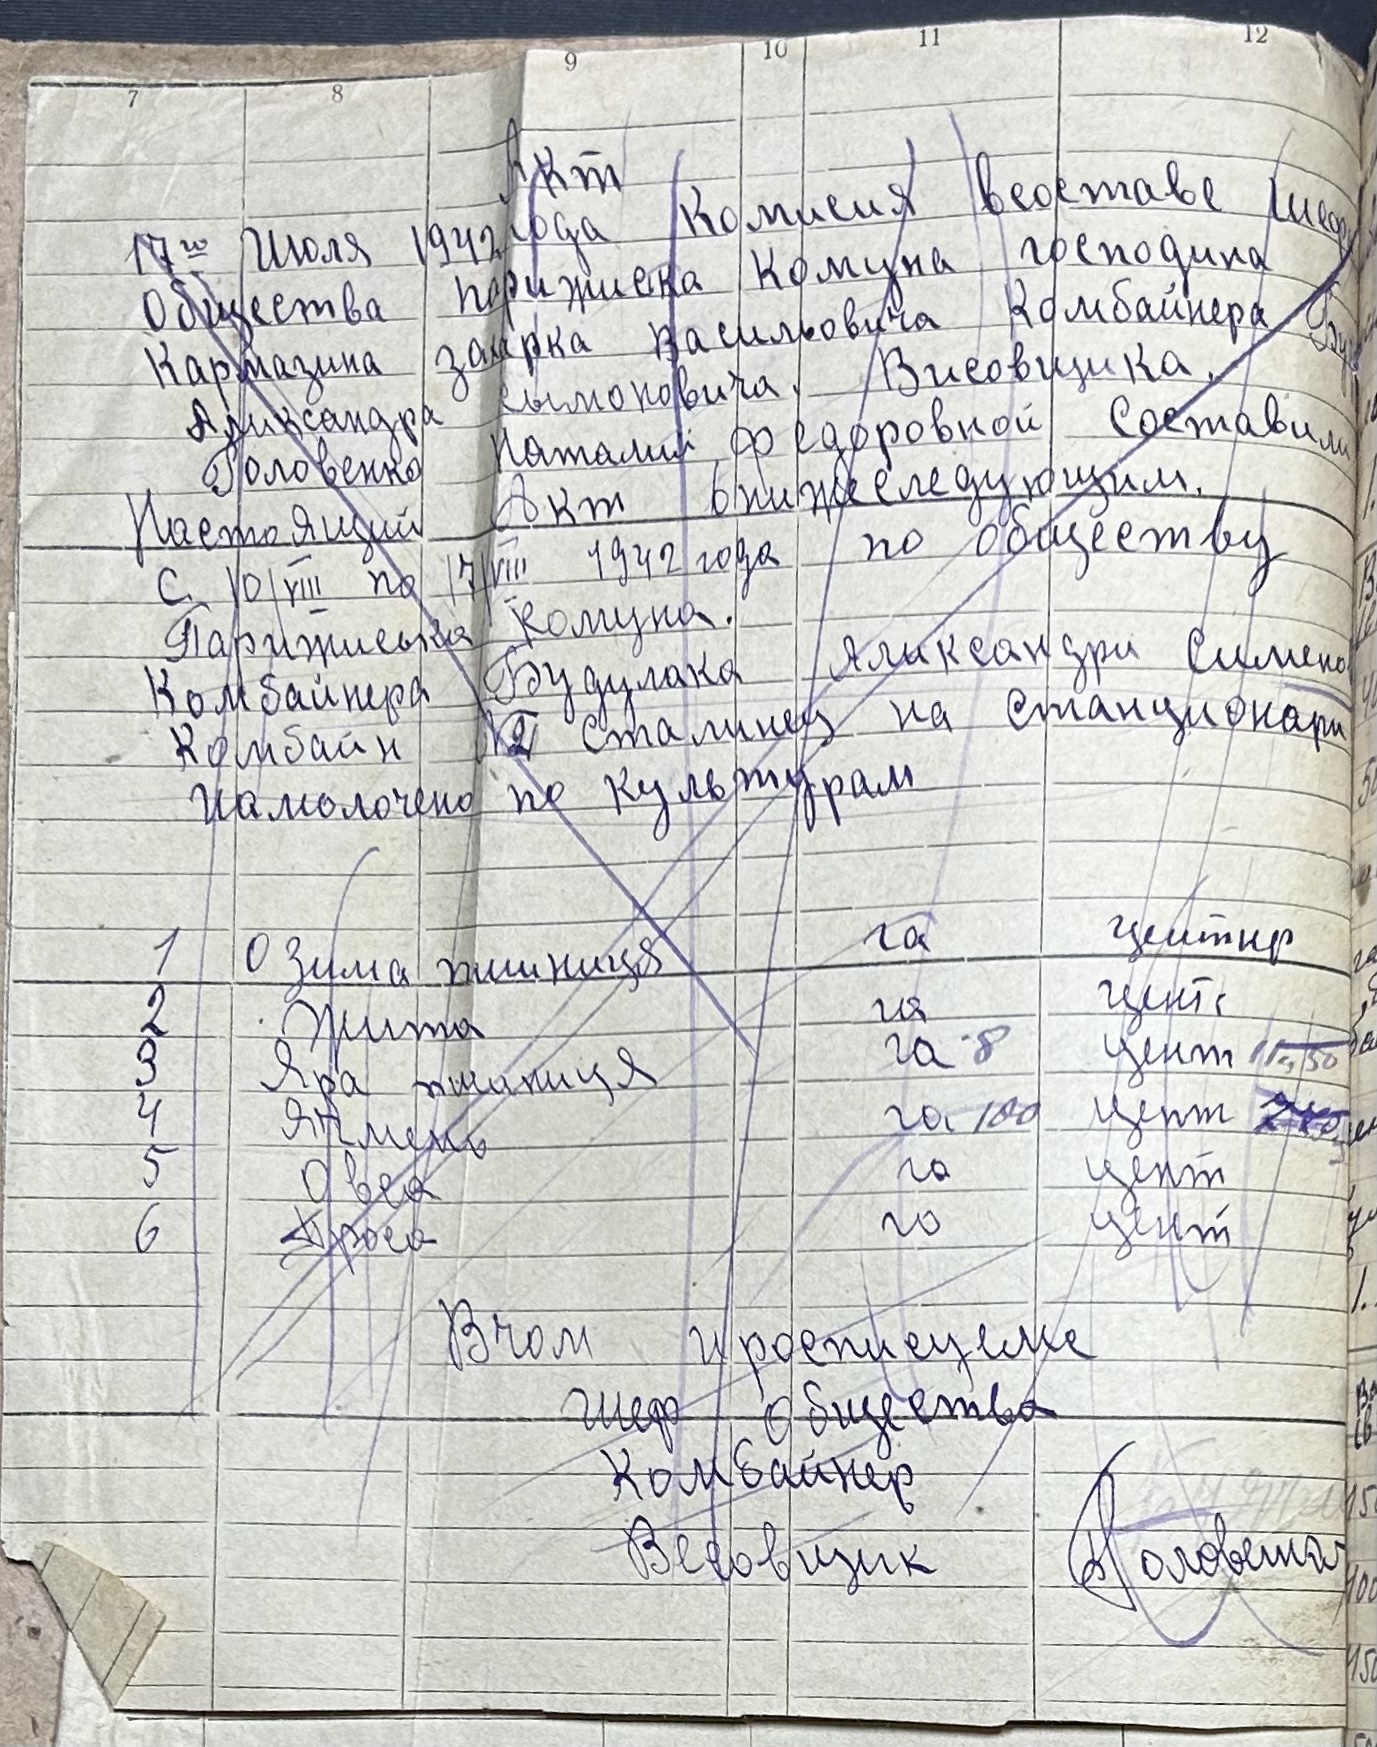 7 8 9 10 11 12
Акт
17го Июля 1942 года Комисия всоставе Шеф
Общества парижиска Комуна господина
Кармазина захарка василювича Комбайнера
Аликсандра сымоновича. Висовщика.
Головенко Наталий федоровной Составили
Настоящий Акт внижеследующим.
С. 10/VIII по 17/VIII 1942 года по обществу
Парижиська комуна.
Комбайнера Будулака Аликсандри Симено
Комбайн №2 Сталинец на Станционари
Намолочено по культурам
1 Озима пшиниця га центнр
2 Жита га цент
3 Яра пшиниця га 8 цент 50
4 Ячмень га 100 цент
5 Овса га цент
6 Проса га цент
Вчом и росписуемс
Шеф Общества
Комбайнер
Весовщик Головенко